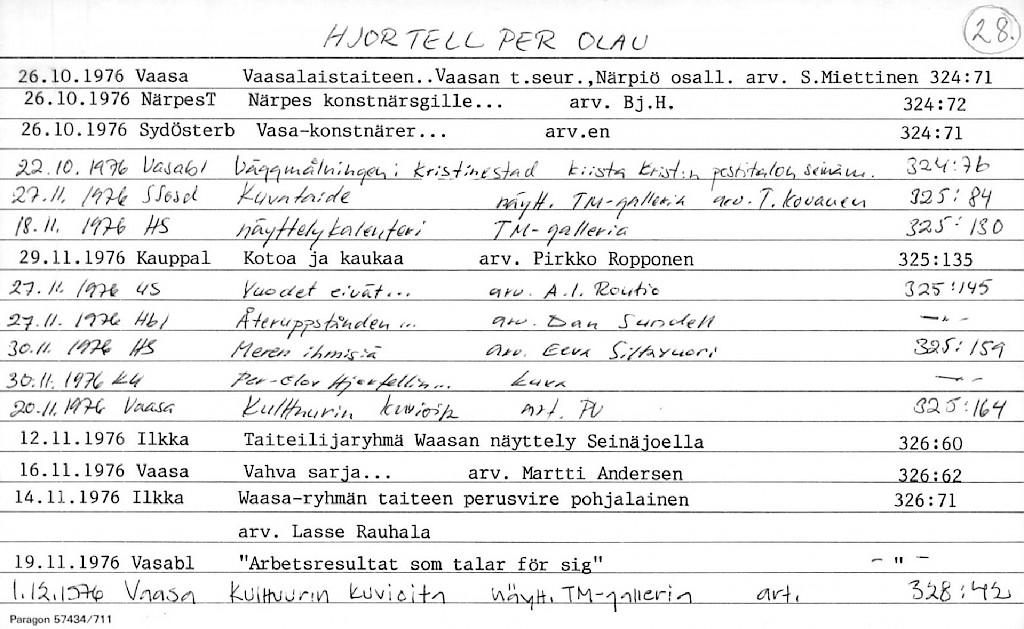 HJORTELL PER OLAU 28.
26.10.1976 Vaasa Vaasalaistaiteen..Vaasan t.seur.,Närpiö osall. arv. S.Miettinen 324:71
26.10.1976 NärpesT Närpes konstnärsgille... arv. Bj.H. 324:72
26.10.1976 Sydösterb Vasa-konstnärer... arv.en 324:71
22.10.1976 Vasabl Väggmålningen i Kristinestad kiista Krist:n postitalon seinäm. 324:76
27.11.1976 SSosd Kuvataide näytt. TM-galleria arv. T. Kovanen 325:84
18.11.1976 HS näyttelykalenteri TM-galleria 325:130
29.11.1976 Kauppal Kotoa ja kaukaa arv. Pirkko Ropponen 325:135
27.11.1976 US Vuodet eivät... arv. A.I. Routio 325:145
27.11.1976 Hbl Återuppstånden... arv. Dan Sundell —"—
30.11.1976 HS Meren ihmisiä arv. Eeva Siltavuori 325:159
30.11.1976 KU Per-Olov Hjortellin... kuva —"—
20.11.1976 Vaasa Kulttuurin kuvioita art. PV 325:164
12.11.1976 Ilkka Taiteilijaryhmä Waasan näyttely Seinäjoella 326:60
16.11.1976 Vaasa Vahva sarja... arv. Martti Andersen 326:62
14.11.1976 Ilkka Waasa-ryhmän taiteen perusvire pohjalainen 326:71
arv. Lasse Rauhala
19.11.1976 Vasabl "Arbetsresultat som talar för sig" — " —
1.12.1976 Vaasa Kulttuurin kuvioita näytt. TM-galleria art. 328:42
Paragon 57434/711